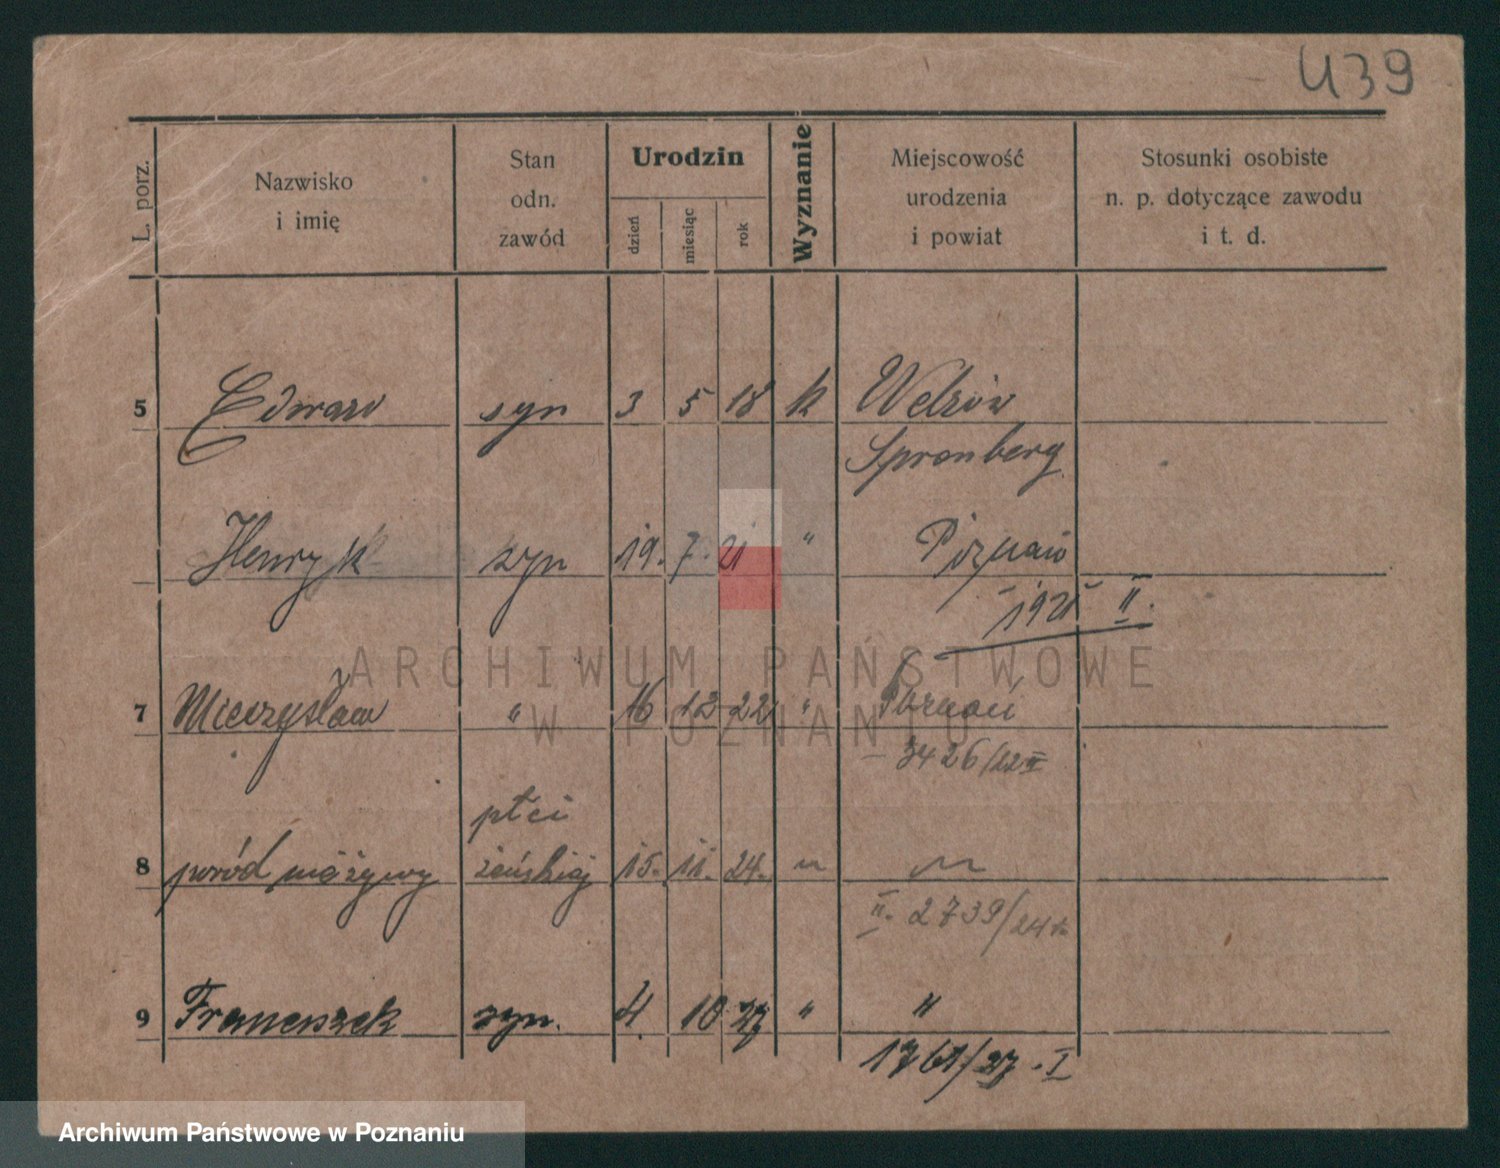 439
L. porz.
Nazwisko
i imię
Stan
odn.
zawód
Urodzin
dzień
miesiąc
rok
Wyznanie
Miejscowość
urodzenia
i powiat
Stosunki osobiste
n. p. dotyczące zawodu
i t. d.
5 Edward syn 3 5 18 k Welzów
Spremberg
Henryk syn 19. 7. 21 " Poznań
II.
7 Mieczysław " 16 12 22 " Poznań
3426/22 II
płci
8 poród nieżywy żeńskiej 15. 11. 24. " "
II. 2739/24
9 Franciszek syn. 4 10 27 " "
1761/27. I
ARCHIWUM PAŃSTWOWE
W POZNANIU
Archiwum Państwowe w Poznaniu